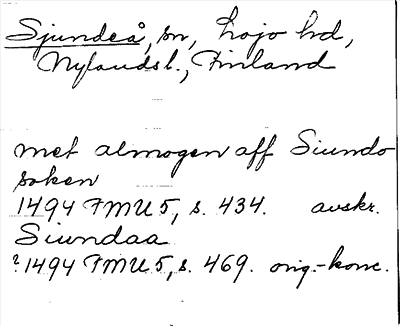 Sjundeå, sn, Lojo hd,
Nylandsl., Finland
met almogen aff Siundo
soken
1494 FMU 5, s. 434. avskr.
Siundaa
?1494 FMU 5, s. 469. orig.-konc.